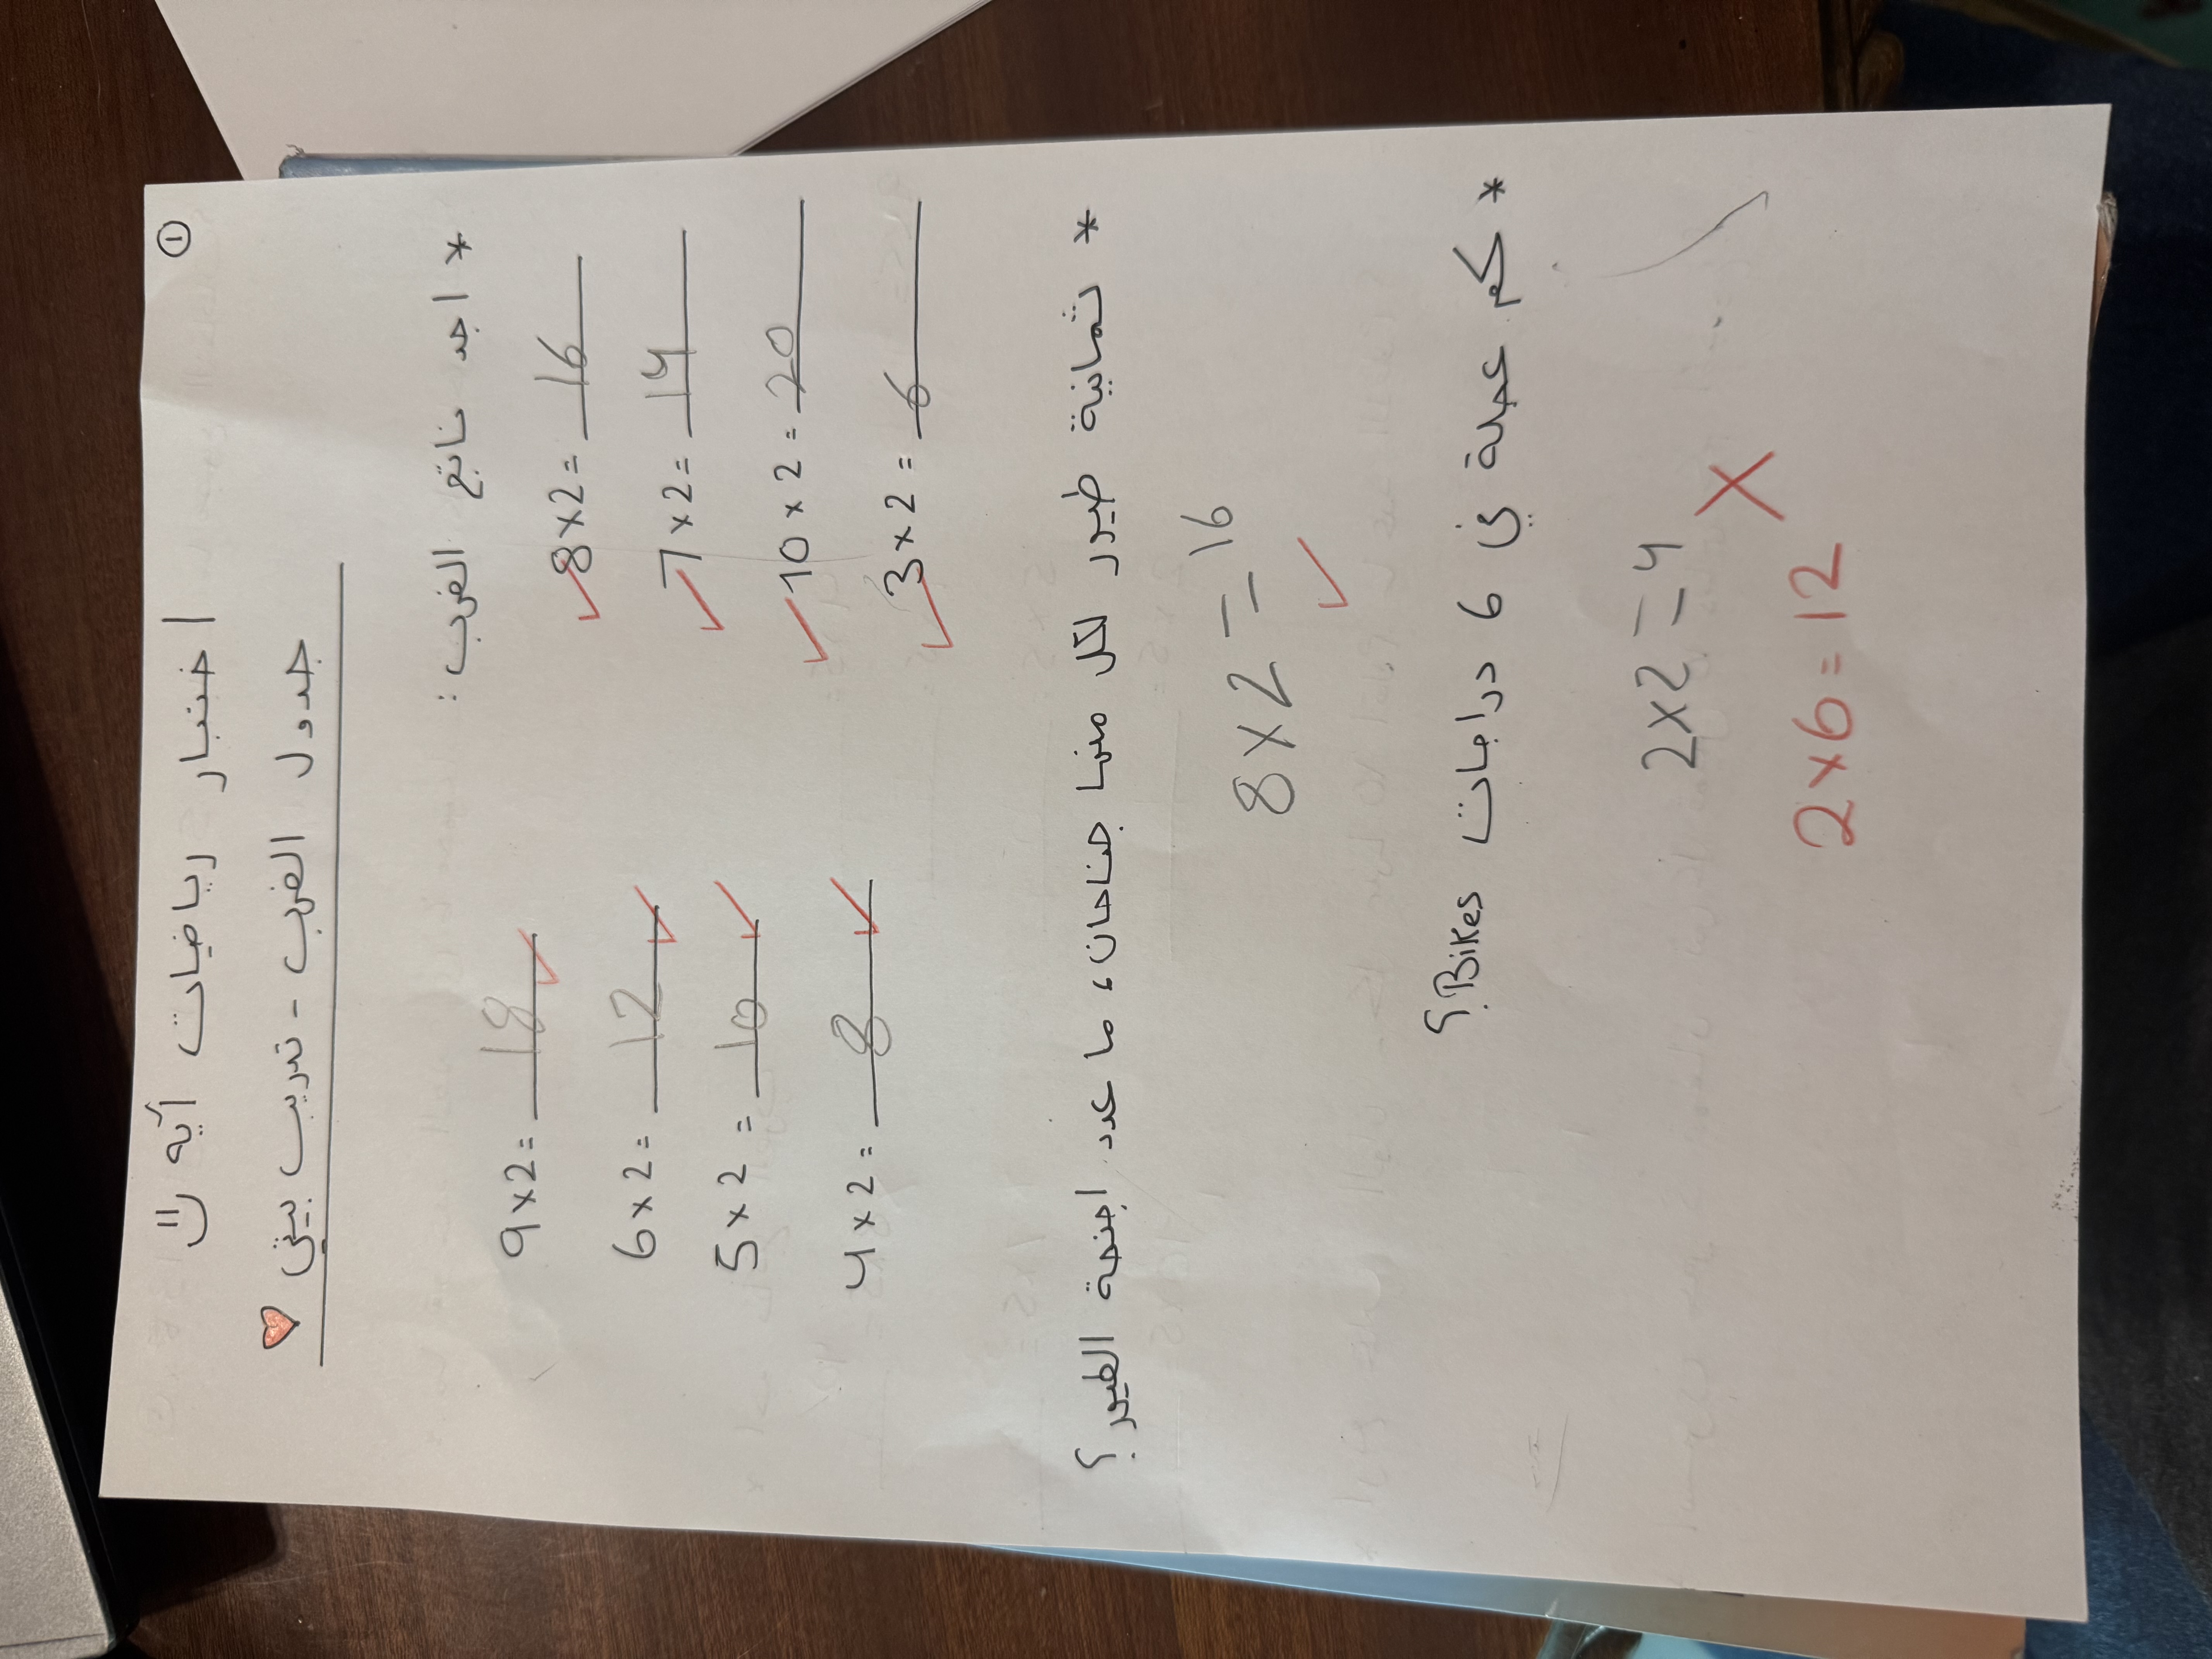 ①
اختبار رياضيات آيه
جدول الضرب - تدريب بيتي
* اجد ناتج الضرب :
8 x 2 = 16
9 x 2 = 18
7 x 2 = 14
6 x 2 = 12
10 x 2 = 20
5 x 2 = 10
3 x 2 = 6
4 x 2 = 8
* ثمانية طيور لكل منها جناحان، ما عدد اجنحة الطيور؟
8 x 2 = 16
* كم عجلة في 6 دراجات Bikes؟
2 x 2 = 4
2 x 6 = 12